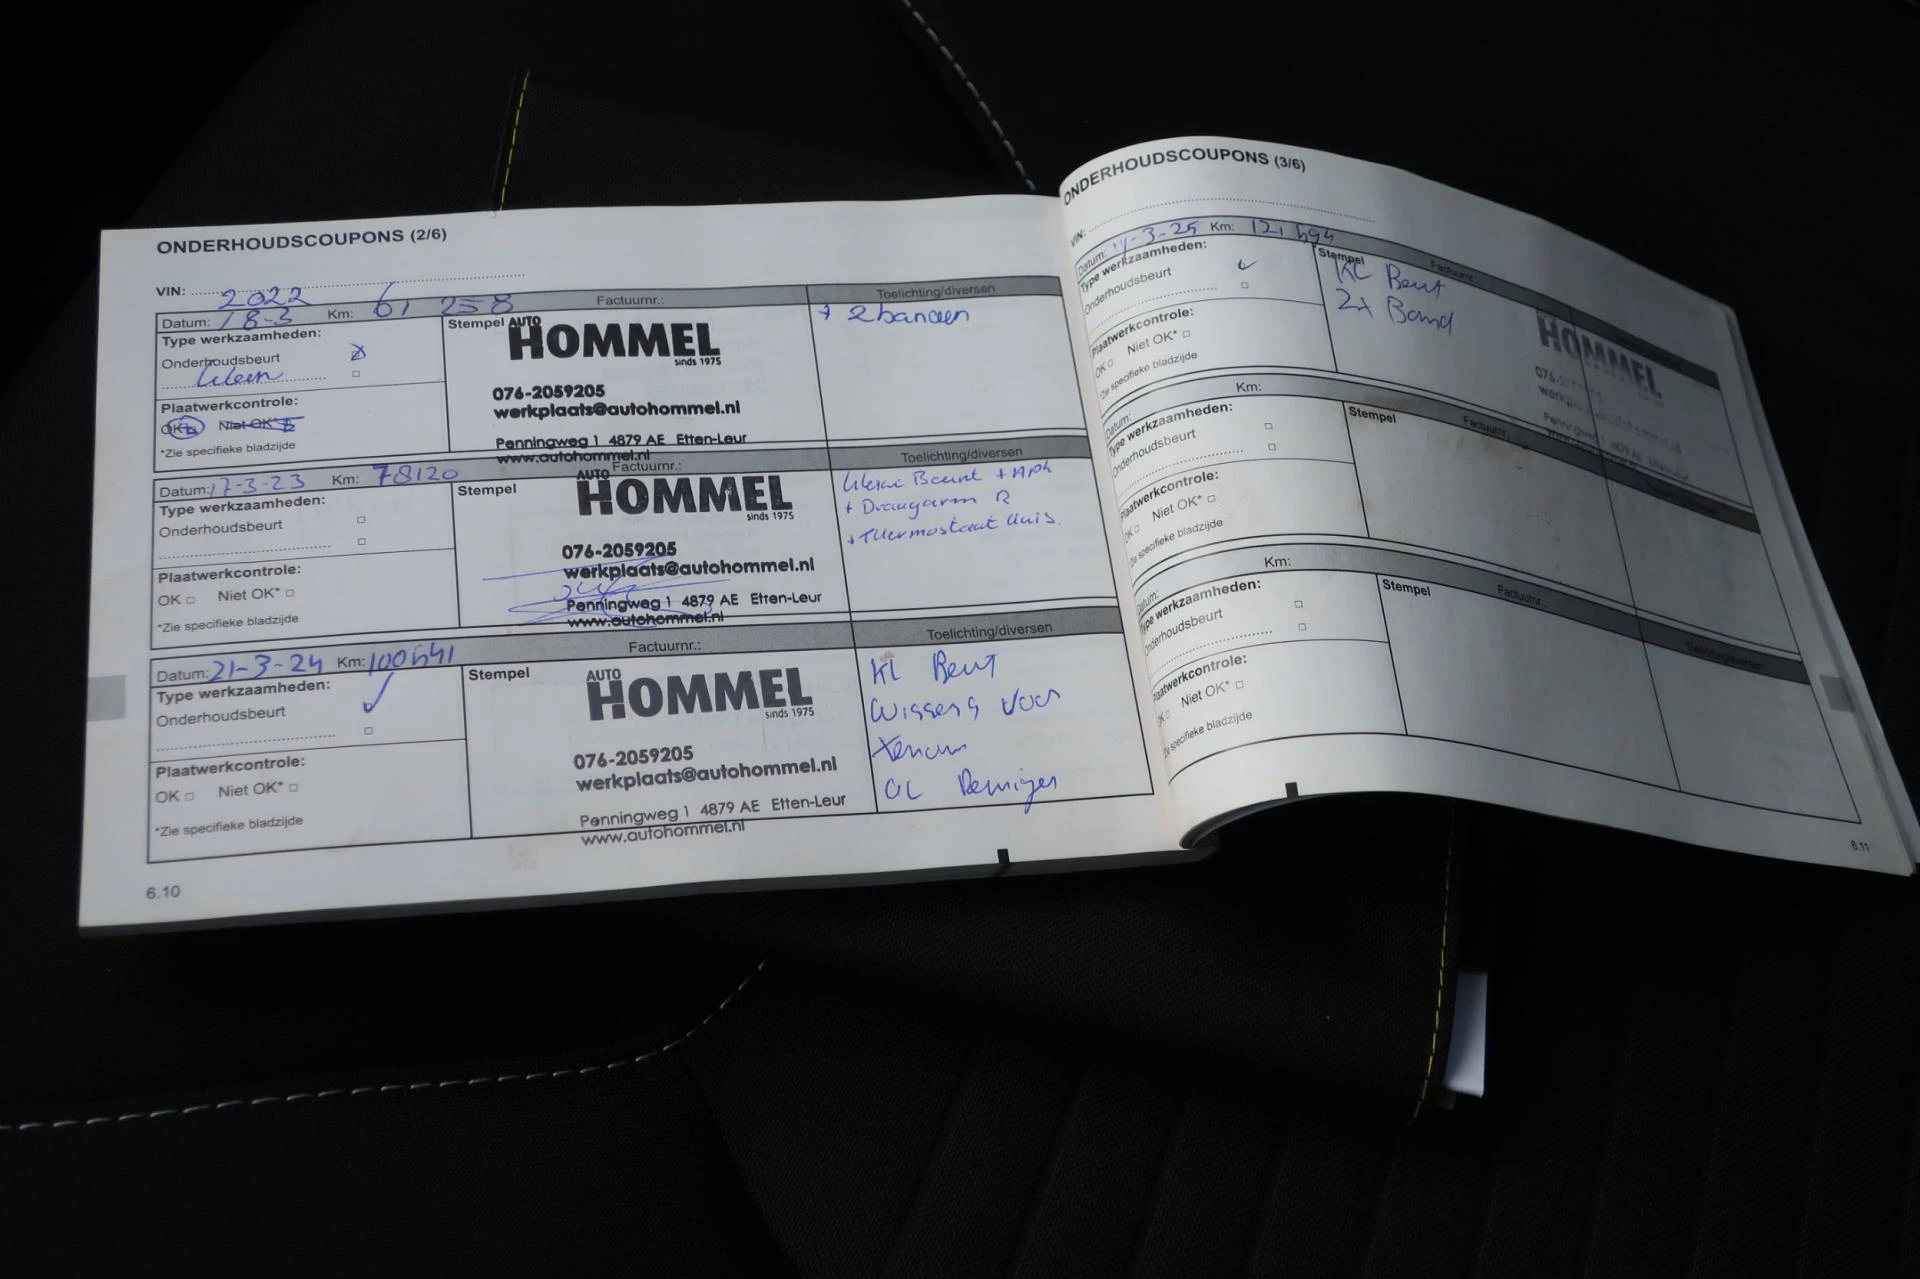 ONDERHOUDSCOUPONS (2/6)
VIN:
2022
Datum: 18-3 Km: 61 258 Factuurnr.: Toelichting/diversen
Type werkzaamheden:
Onderhoudsbeurt
kleen
Plaatwerkcontrole:
OK Niet OK*
*Zie specifieke bladzijde
Stempel AUTO
HOMMEL
sinds 1975
076-2059205
werkplaats@autohommel.nl
Penningweg 1 4879 AE Etten-Leur
www.autohommel.nl
+ 2banden
Datum: 17-3-23 Km: 78120 Factuurnr.: Toelichting/diversen
Type werkzaamheden:
Onderhoudsbeurt
Plaatwerkcontrole:
OK Niet OK*
*Zie specifieke bladzijde
Stempel AUTO
HOMMEL
sinds 1975
076-2059205
werkplaats@autohommel.nl
Penningweg 1 4879 AE Etten-Leur
www.autohommel.nl
Kleine Beurt + APK
+ Draagarm R
+ Thermostaat Huis.
Datum: 21-3-24 Km: 100541 Factuurnr.: Toelichting/diversen
Type werkzaamheden:
Onderhoudsbeurt
Plaatwerkcontrole:
OK Niet OK*
*Zie specifieke bladzijde
Stempel AUTO
HOMMEL
sinds 1975
076-2059205
werkplaats@autohommel.nl
Penningweg 1 4879 AE Etten-Leur
www.autohommel.nl
KL Beurt
Wissers Voor
Reiniger
6.10
ONDERHOUDSCOUPONS (3/6)
VIN:
Datum: -3-25 Km: Factuurnr.:
Type werkzaamheden:
Onderhoudsbeurt
Plaatwerkcontrole:
OK Niet OK*
*Zie specifieke bladzijde
Stempel
KL Beurt
2x Band
HOMMEL
076-
Penningweg 1 4879 AE
Datum: Km: Factuurnr.:
Type werkzaamheden:
Onderhoudsbeurt
Plaatwerkcontrole:
OK Niet OK*
*Zie specifieke bladzijde
Stempel
Datum: Km: Factuurnr.:
Type werkzaamheden:
Onderhoudsbeurt
Plaatwerkcontrole:
OK Niet OK*
*Zie specifieke bladzijde
Stempel
Toelichting/diversen
6.11